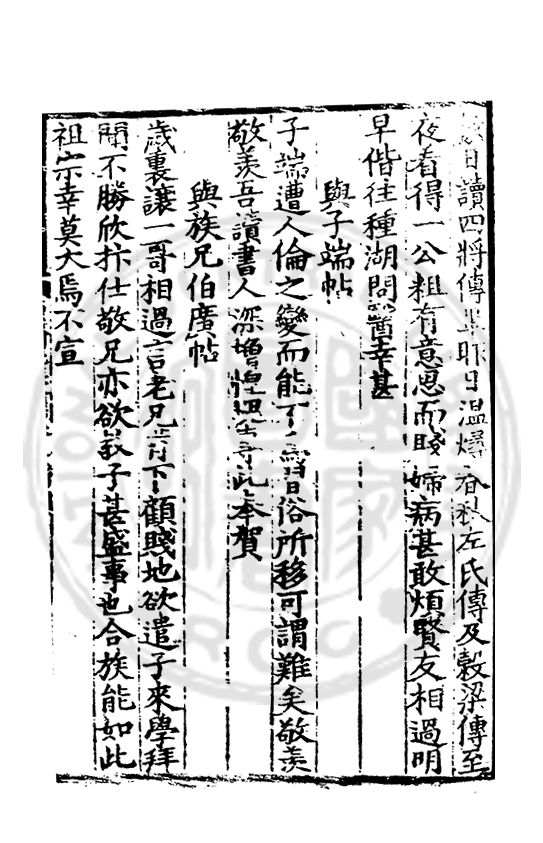 日讀四將傳昨日溫燖春秋左氏傳及穀梁傳至
夜看得一公粗有意思而賤婦病甚敢煩賢友相過明
早偕往種湖問醫幸甚
與子端帖
子端遭人倫之變而能不為習俗所移可謂難矣敬羨
敬羨吾讀書人深增惶此奉賀
與族兄伯廣帖
歲裏讓一哥相過言老兄肯下顧賤地欲遣子來學拜
聞不勝欣抃仕敬兄亦欲教子甚盛事也合族能如此
祖宗幸莫大焉不宣